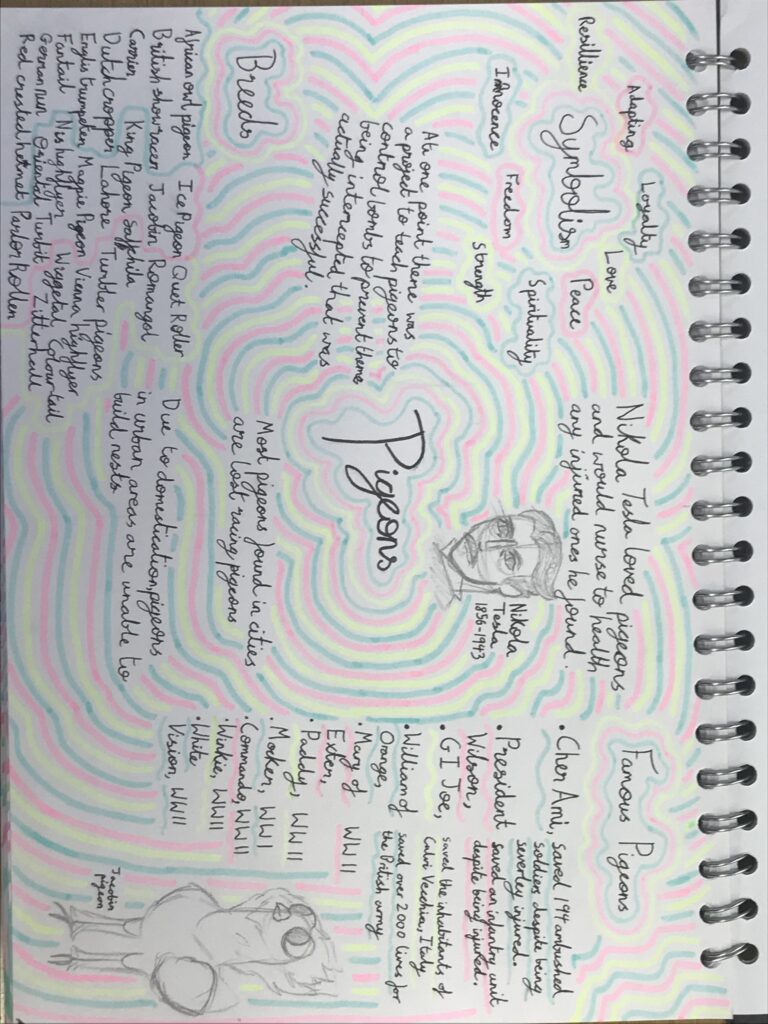 Symbolism
Resillience
Adapting
Loyalty
Innocence
Love
Freedom
Peace
Strength
Spirituality
At one point there was
a project to teach pigeons to
control bombs to prevent theme
being intercepted that was
actually successful.
Breeds
African owl pigeon Ice Pigeon Quet Roller
British show racer Jacobin Romangol
Carrier King Pigeon
Dutch cropper Lahore Tumbler pigeons
Englis trumpeter Magpie Pigeon Vienna highflyer
Fantail Nis highflyer Colourtail
German run Oriental Turbit
Red crested helmet Parlor Roller
Pigeons
Nikola Tesla loved pigeons
and would nurse to health
any injured ones he found.
Nikola
Tesla
1856-1943
Most pigeons found in cities
are lost racing pigeons
Due to domestication, pigeons
in urban areas are unable to
build nests
Famous Pigeons
• Cher Ami, saved 194 ambushed
soldiers despite being
severley injured.
• President saved an infantry unit
Wilson, despite being injured.
• GI Joe, saved the inhabitants of
Calvi Vecchia, Italy
• William of saved over 2000 lives for
Orange, the British army
• Mary of
Exter, WWII
• Paddy, WWII
• Mocker, WWI
• Commando, WWII
• Winkie, WWII
• White
Vision, WWII
Jacobin
pigeon